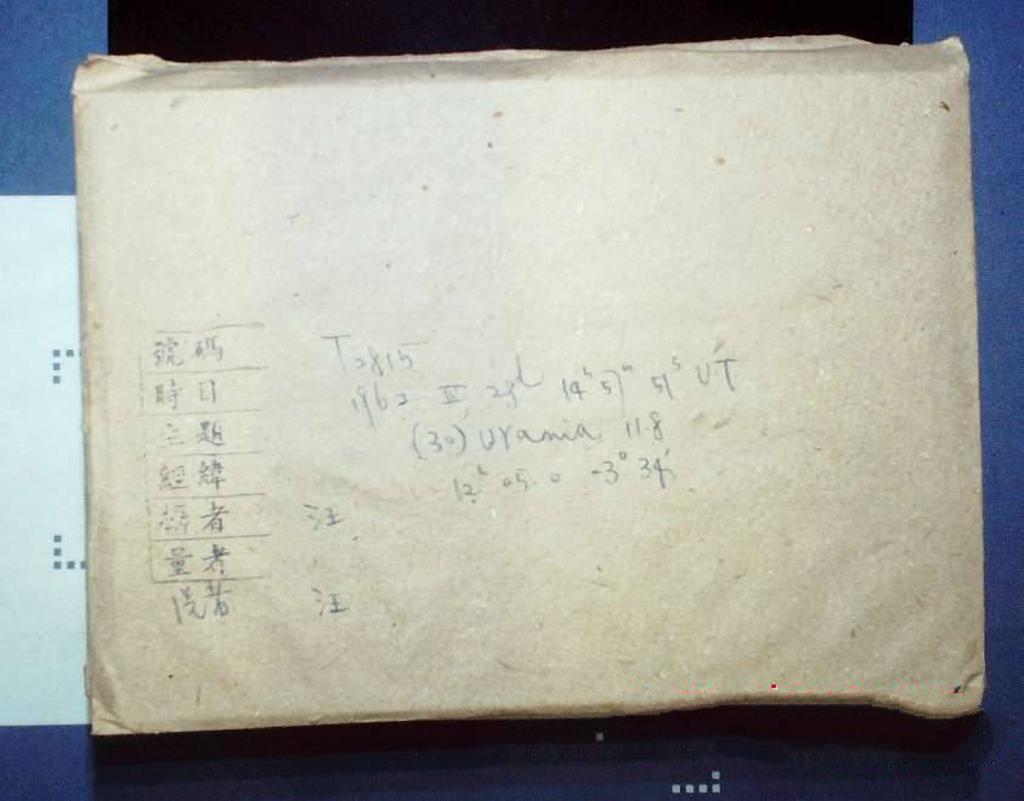 號碼 T2815
時日 1962 III 29d 14h 57m 51s U.T
主題 (30) Urania 11.8
經緯 12h 05.0 -3° 34'
攝者 汪
量者
洗者 汪